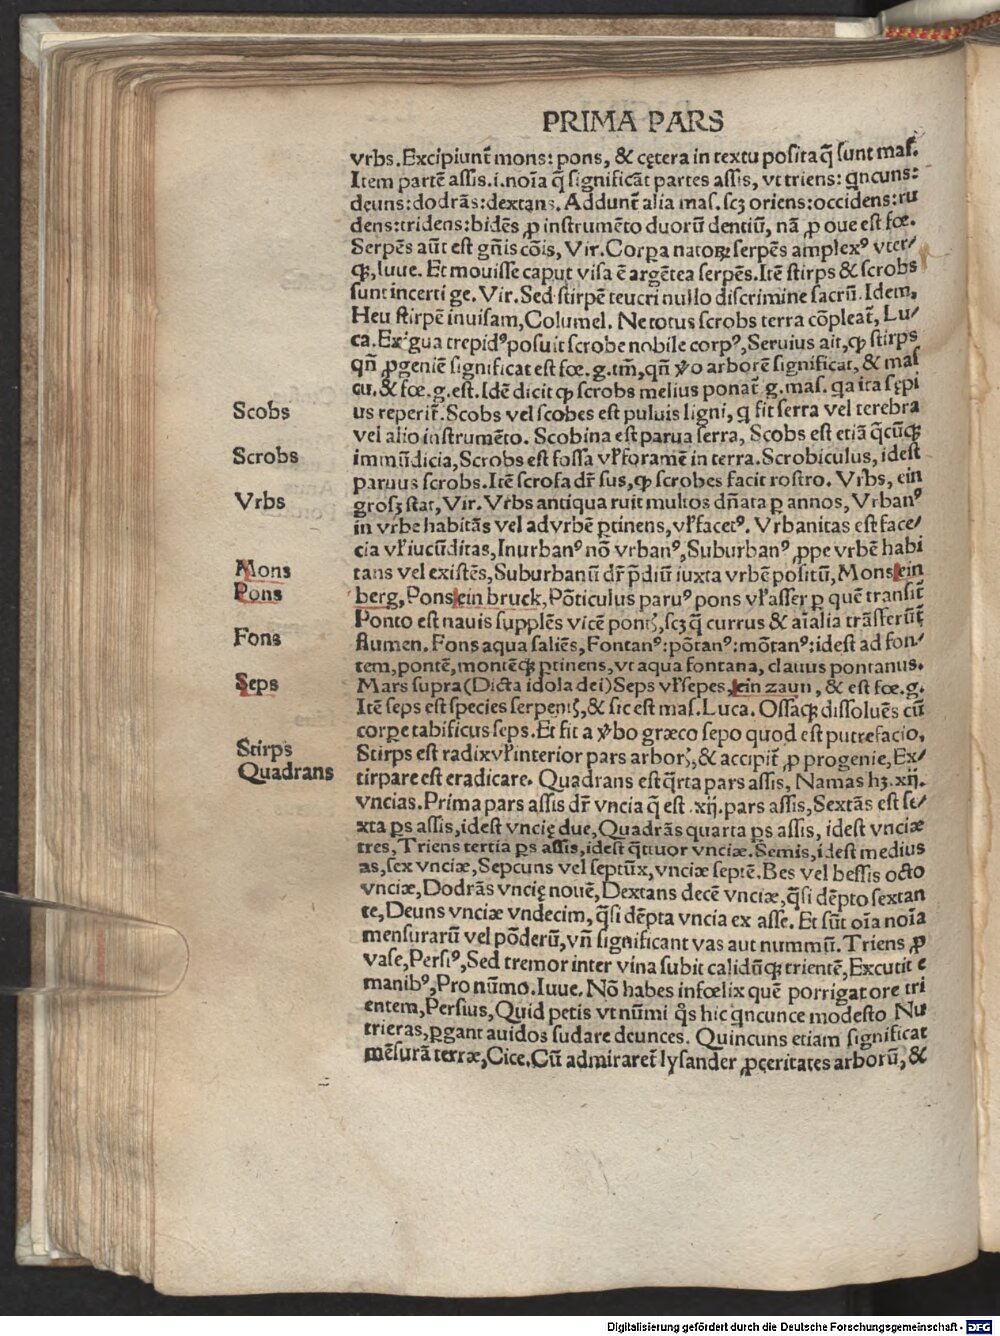 PRIMA PARS
vrbs. Excipiunt̃ mons: pons, & cętera in textu posita q̃ sunt mas.
Item partẽ assis .i. noĩa q̃ significãt partes assis, vt triens: qncuns:
deuns: dodrãs: dextans. Addunt̃ alia mas. scȝ oriens: occidens: ru
dens: tridens: bidẽs ꝓ instrumẽto duorũ dentiũ, nã ꝓ oue est fœ.
Serpẽs aũt est gñis cõis, Vir. Corꝑa natoꝝ serpẽs amplexꝰ vter⸗
qꝫ, Iuue. Et mouisse caput visa ẽ argẽtea serpẽs. Itẽ stirps & scrobs
sunt incerti ge. Vir. Sed stirpẽ teucri nullo discrimine sacrũ. Idem,
Heu stirpẽ inuisam, Columel. Ne totus scrobs terra cõpleat̃, Lu⸗
ca. Exigua trepidꝰ posuit scrobe nobile corpꝰ, Seruius ait, ꝙ stirps
qñ ꝓgeniẽ significat est fœ. g. tm̃, qñ ỹo arborẽ significat, & mas
cu. & fœ. g. est. Idẽ dicit ꝙ scrobs melius ponat̃ g. mas. qa ita sępi
Scobs us reperit̃. Scobs vel scobes est puluis ligni, q fit serra vel terebra
vel alio instrumẽto. Scobina est parua serra, Scobs est etiã q̃cũqꝫ
Scrobs immũdicia, Scrobs est fossa vl̃ foramẽ in terra. Scrobiculus, idest
paruus scrobs. Itẽ scrofa dr̃ sus, ꝙ scrobes facit rostro. Vrbs, ein
Vrbs grosȝ stat, Vir. Vrbs antiqua ruit multos dñata ꝑ annos, Vrbanꝰ
in vrbe habitãs vel ad vrbẽ ꝑtinens, vl̃ facetꝰ. Vrbanitas est face⸗
cia vl̃ iucũditas, Inurbanꝰ nõ vrbanꝰ, Suburbanꝰ ꝓpe vrbẽ habi
Mons tans vel existẽs, Suburbanũ dr̃ p̃diũ iuxta vrbẽ positũ, Mons ein
Pons berg, Pons ein bruck, Põticulus paruꝰ pons vl̃ asser ꝑ quẽ transit̃
Ponto est nauis supplẽs vicẽ pontꝭ, scȝ q̃ currus & aĩalia trãsferũt̃
Fons flumen. Fons aqua saliẽs, Fontanꝰ: põtanꝰ: mõtanꝰ: idest ad fon⸗
tem, pontẽ, montẽqꝫ ꝑtinens, vt aqua fontana, clauus pontanus.
Seps Mars supra (Dicta idola dei) Seps vl̃ sepes, ein zaun, & est fœ. g.
Itẽ seps est species serpentꝭ, & sic est mas. Luca. Ossaqꝫ dissoluẽs cũ
corꝑe tabificus seps. Et fit a ỹbo græco sepo quod est putrefacio,
Stirps Stirps est radix vl̃ interior pars arborꝭ, & accipit̃ ꝓ progenie, Ex⸗
Quadrans tirpare est eradicare. Quadrans est q̃rta pars assis, Nam as hȝ .xij.
vncias. Prima pars assis dr̃ vncia q̃ est .xij. pars assis, Sextãs est se⸗
xta ꝑs assis, idest vncię due, Quadrãs quarta ꝑs assis, idest vnciæ
tres, Triens tertia ꝑs assis, idest q̃ttuor vnciæ. Semis, idest medius
as, sex vnciæ, Sepcuns vel septũx, vnciæ septẽ. Bes vel bessis octo
vnciæ, Dodrãs vncię nouẽ, Dextans decẽ vnciæ, q̃si dẽpto sextan
te, Deuns vnciæ vndecim, q̃si dẽpta vncia ex asse. Et sũt oĩa noĩa
mensurarũ vel põderũ, vñ significant vas aut nummũ. Triens ꝓ
vase, Persiꝰ, Sed tremor inter vina subit calidũqꝫ trientẽ, Excutit e
manibꝰ, Pro nũmo. Iuue. Nõ habes infœlix quẽ porrigat ore tri
entem, Persius, Quid petis vt nũmi q̃s hic qncunce modesto Nu
trieras, ꝑgant auidos sudare deunces. Quincuns etiam significat
mẽsurã terræ, Cice. Cũ admiraret̃ lysander ꝓceritates arborũ, &
Digitalisierung gefördert durch die Deutsche Forschungsgemeinschaft - DFG